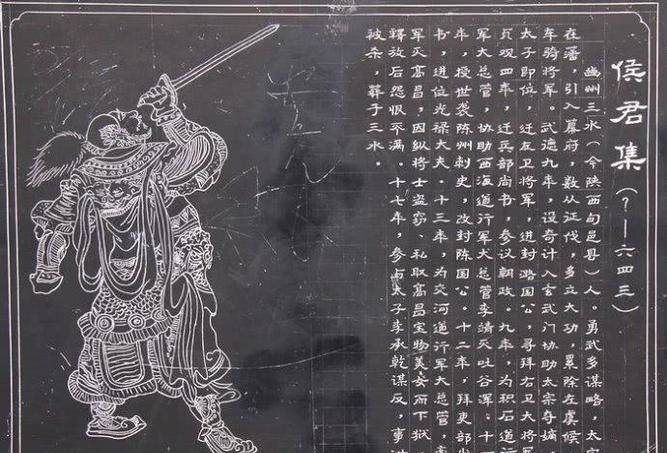 侯君集(?—六四三)
豳州三水(今陕西旬邑县)人。勇武多谋略,太宗
在藩,引入幕府,数从征伐,多立大功,累除左虞候
车骑将军。武德九年,设奇计入玄武门协助太宗夺嫡,
太子即位,迁左卫将军,进封潞国公,寻拜右卫大将军
贞观四年,迁兵部尚书,参议朝政。九年,为积石道行
军大总管,协助西海道行军大总管李靖灭吐谷浑。十一
年,授世袭陈州刺史,改封陈国公。十二年,拜吏部尚
书,进位光禄大夫。十三年,为交河道行军大总管,率
军灭高昌,因纵将士盗窃、私取高昌宝物美妾而下狱,
释放后怨恨不满。十七年,参与太子李承乾谋反,事泄
被杀,葬于三水。